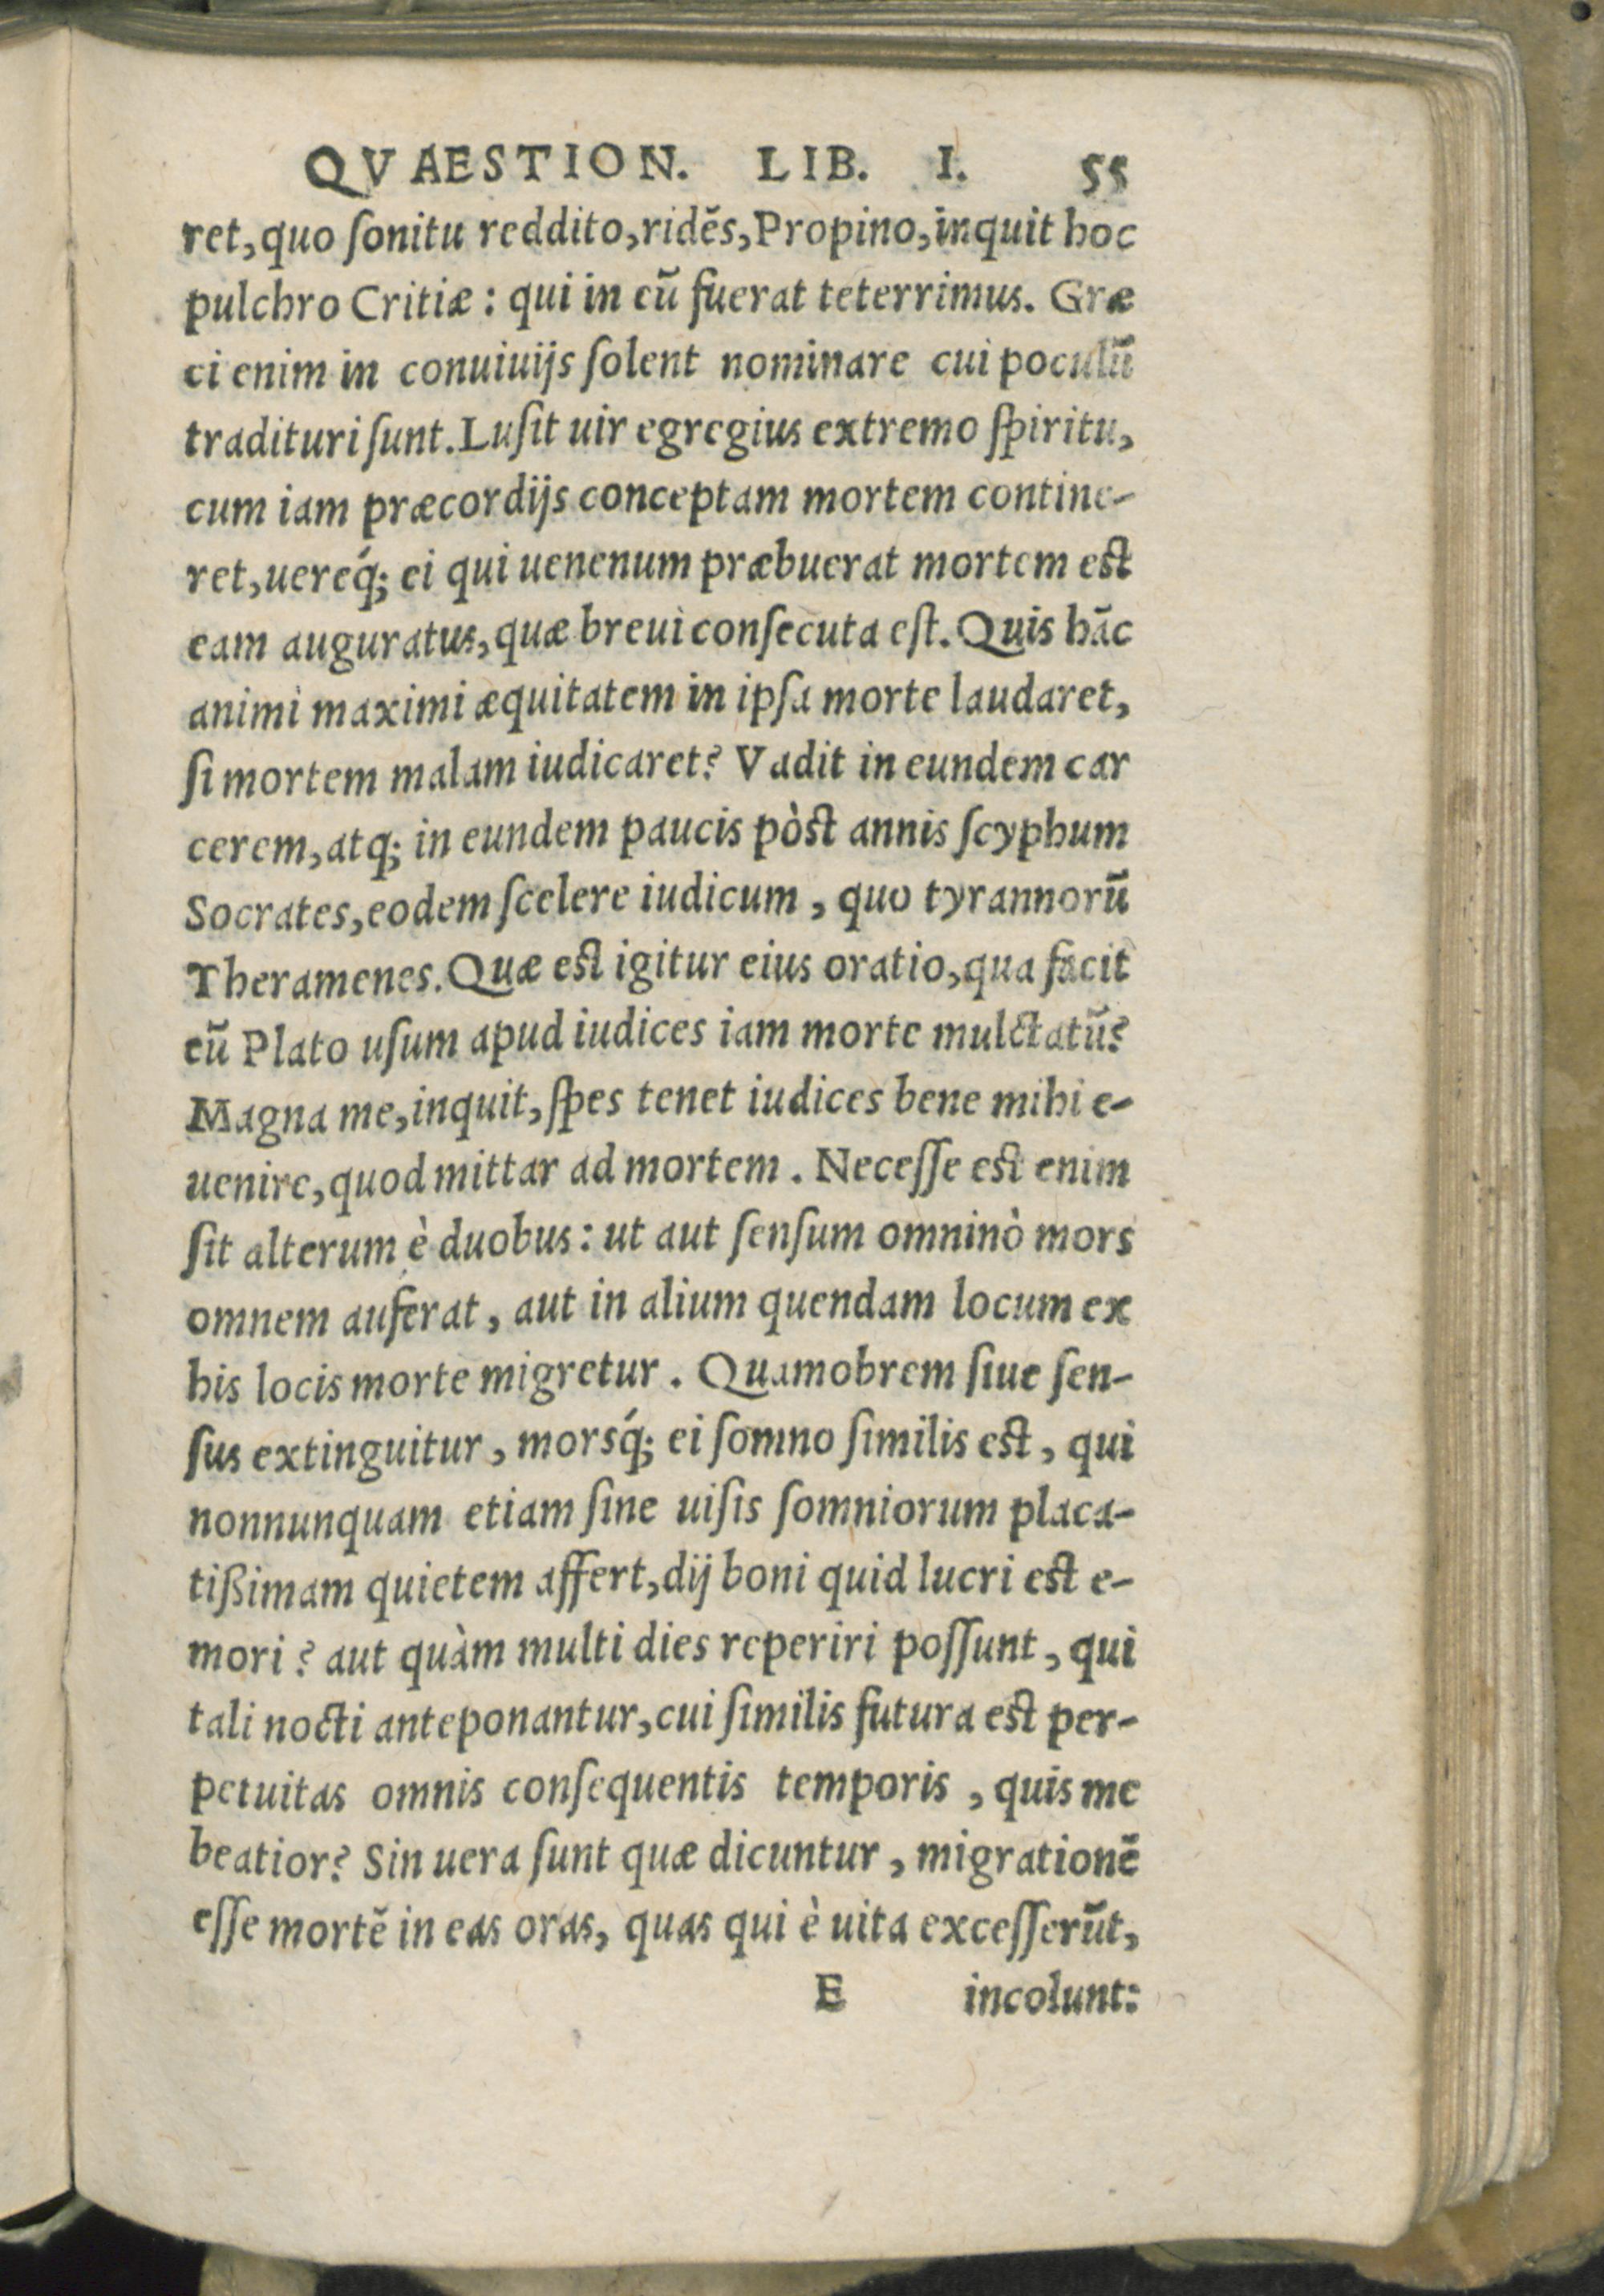 QVAESTION. LIB. I. 55
ret, quo ſonitu reddito, ridẽs, Propino, inquit hoc
pulchro Critiæ: qui in eũ fuerat teterrimus. Græ
ci enim in conuiuijs ſolent nominare cui poculũ
tradituri ſunt. Luſit uir egregius extremo ſpiritu,
cum iam præcordijs conceptam mortem contine-
ret, uereq́; ei qui uenenum præbuerat mortem est
eam auguratus, quæ breui conſecuta eſt. Quis hãc
animi maximi æquitatem in ipſa morte laudaret,
ſi mortem malam iudicaret? Vadit in eundem car
cerem, atq; in eundem paucis pòst annis ſcyphum
Socrates, eodem ſcelere iudicum, quo tyrannorũ
Theramenes. Quæ est igitur eius oratio, qua facit
eũ Plato uſum apud iudices iam morte mulctatũ?
Magna me, inquit, ſpes tenet iudices bene mihi e-
uenire, quod mittar ad mortem. Neceſſe est enim
ſit alterum è duobus: ut aut ſenſum omninò mors
omnem auferat, aut in alium quendam locum ex
his locis morte migretur. Quamobrem ſiue ſen-
ſus extinguitur, morsq́; ei ſomno ſimilis est, qui
nonnunquam etiam ſine uiſis ſomniorum placa-
tißimam quietem affert, dij boni quid lucri est e-
mori? aut quàm multi dies reperiri poſſunt, qui
tali nocti anteponantur, cui ſimilis futura est per-
petuitas omnis conſequentis temporis, quis me
beatior? Sin uera ſunt quæ dicuntur, migrationẽ
eſſe mortẽ in eas oras, quas qui è uita exceſſerũt,
E incolunt: